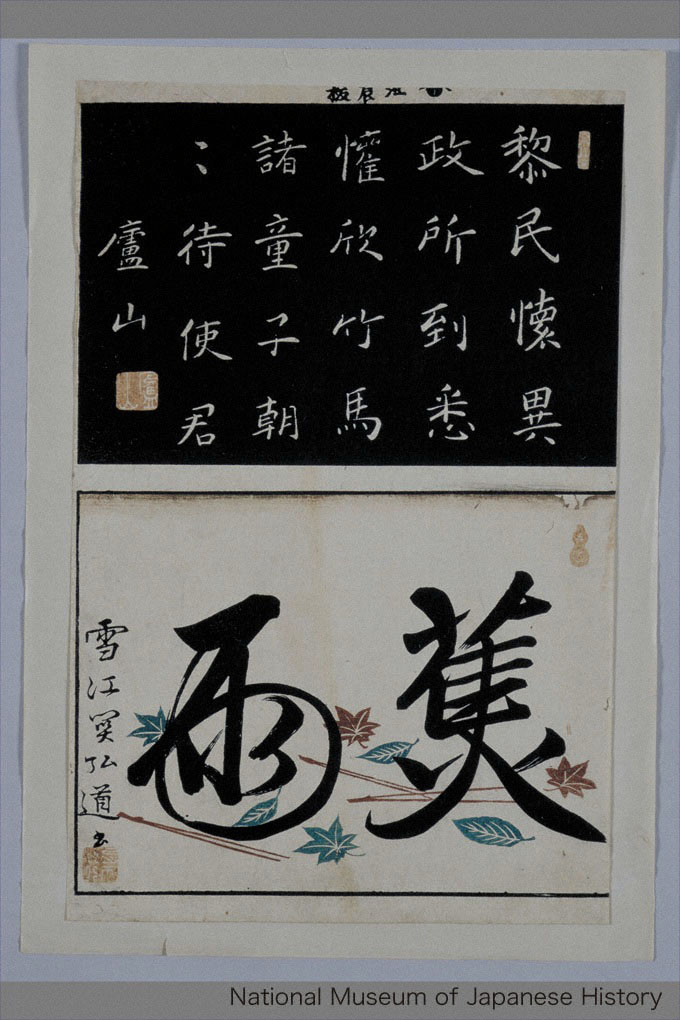 黎民懷異
政所到悉
懽欣竹馬
諸童子朝
〻待使君
廬山
蕉雨
雪江関弘道書
National Museum of Japanese History